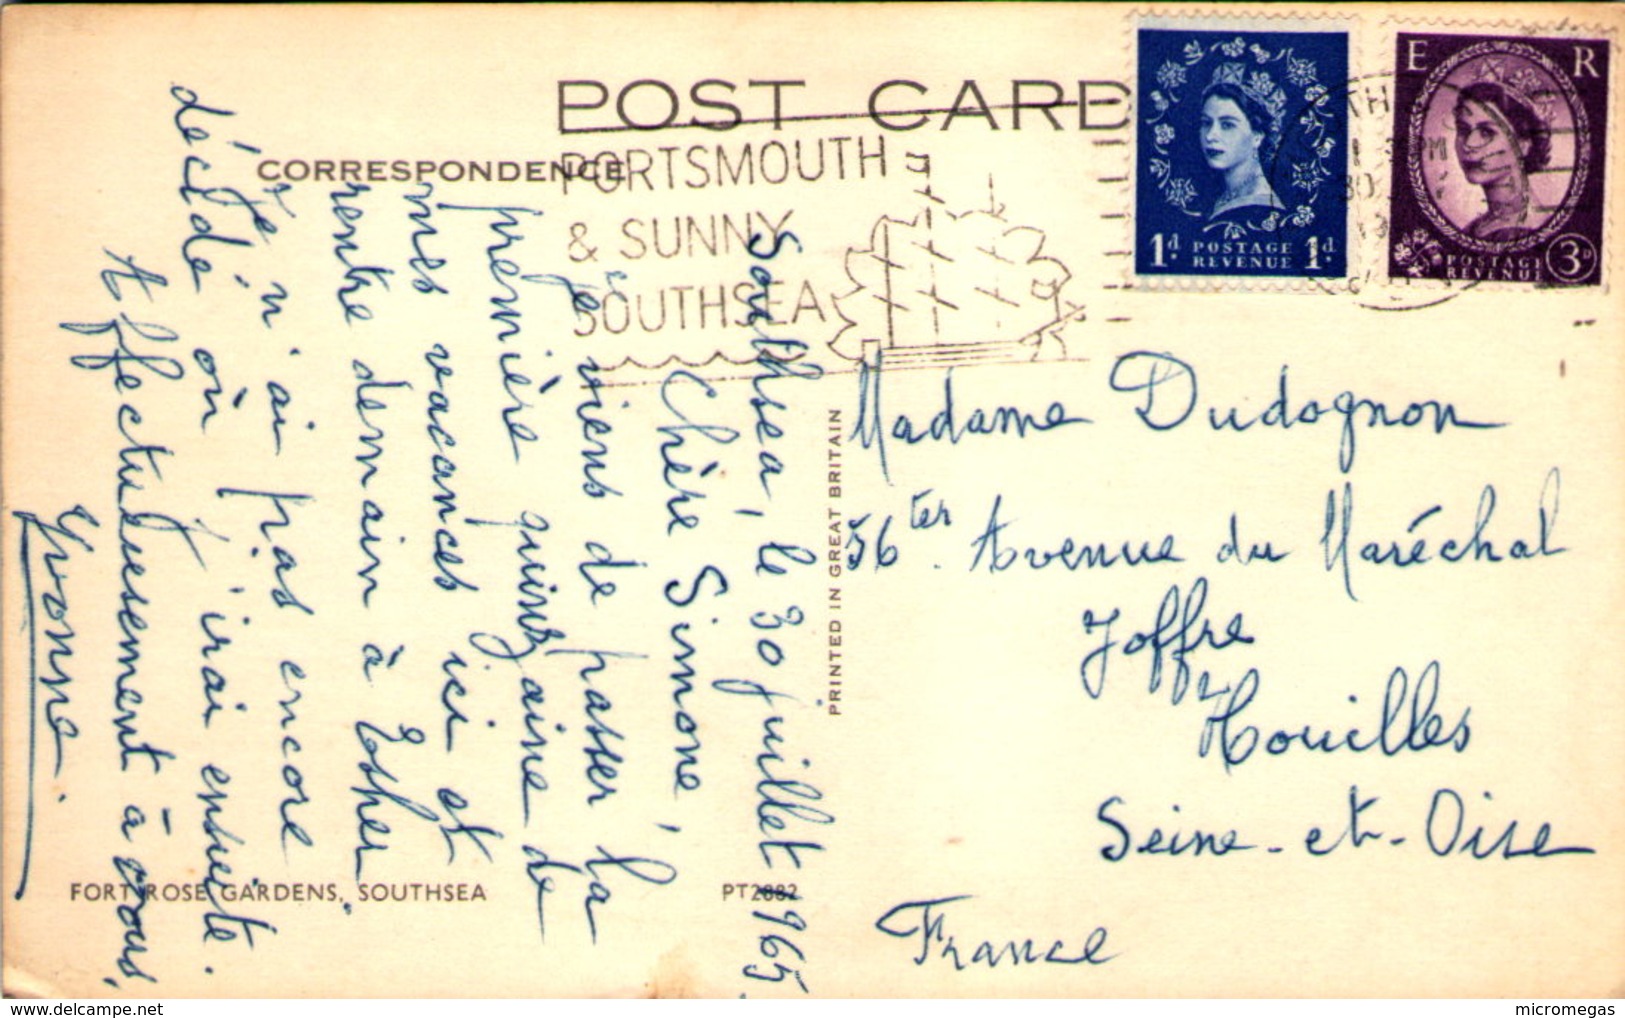 POST CARD
CORRESPONDENCE
PORTSMOUTH
& SUNNY
SOUTHSEA
1d POSTAGE REVENUE 1d
E R
POSTAGE REVENUE 3D
PM
30
19
Southsea, le 30 juillet 1965
Chère Simone,
Je viens de passer la
première quinzaine de
mes vacances ici et
rentre demain à Esher
Je n'ai pas encore
décidé où j'irai ensuite.
Affectueusement à vous,
Yvonne.
PRINTED IN GREAT BRITAIN
Madame Dudognon
56 ter. Avenue du Maréchal
Joffre
Houilles
Seine-et-Oise
France
FORT ROSE GARDENS, SOUTHSEA
PT2882
delcampe.net
micromegas